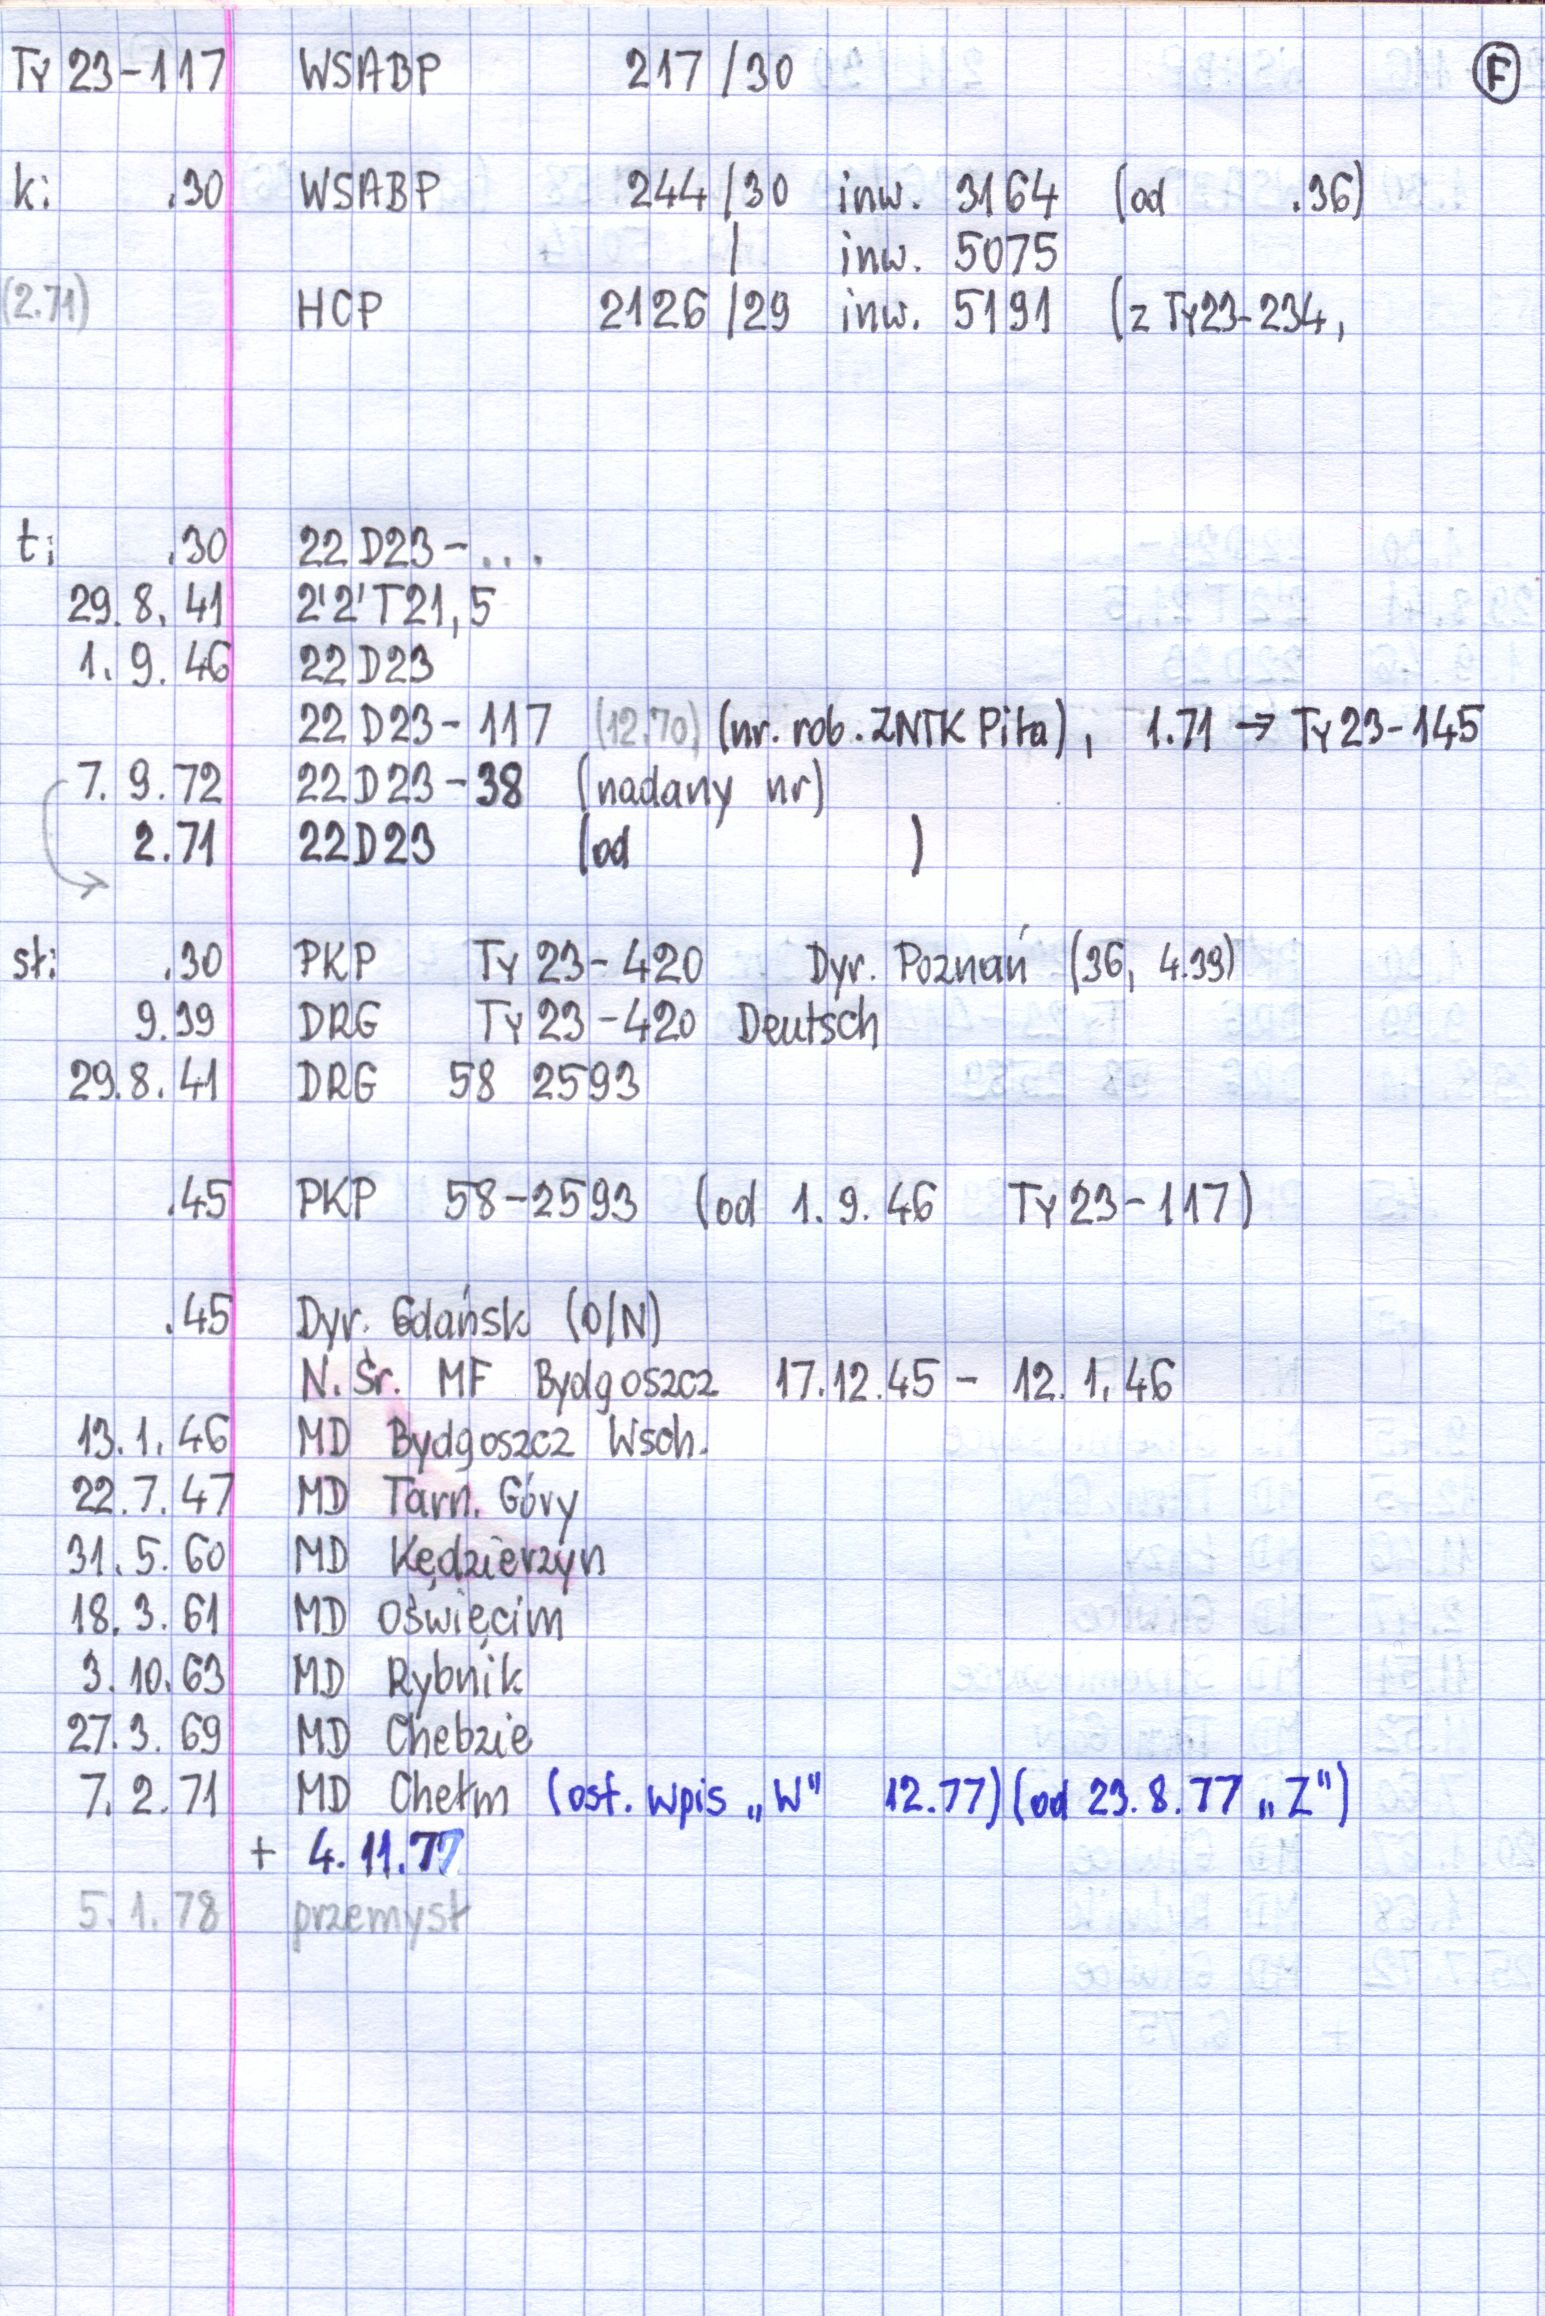 Ty 23-117 WSABP 217/30 F
k: .30 WSABP 244/30 inw. 3164 (od .36)
/ inw. 5075
(2.71) HCP 2126/29 inw. 5191 (z Ty23-234,
t: .30 22D23-...
29.8.41 2'2'T21,5
1.9.46 22D23
22D23-117 (12.70) (nr. rob. ZNTK Piła), 1.71 → Ty23-145
7.9.72 22D23-38 (nadany nr)
2.71 22D23 (od )
sł: .30 PKP Ty 23-420 Dyr. Poznań (36, 4.39)
9.39 DRG Ty 23-420 Deutsch
29.8.41 DRG 58 2593
.45 PKP 58-2593 (od 1.9.46 Ty 23-117)
.45 Dyr. Gdańsk (O/N)
N.Śr. MF Bydgoszcz 17.12.45 - 12.1.46
13.1.46 MD Bydgoszcz Wsch.
22.7.47 MD Tarn. Góry
31.5.60 MD Kędzierzyn
18.3.61 MD Oświęcim
3.10.63 MD Rybnik
27.3.69 MD Chebzie
7.2.71 MD Chełm (ost. wpis „W" 12.77) (od 23.8.77 „Z")
+ 4.11.77
5.1.78 przemysł